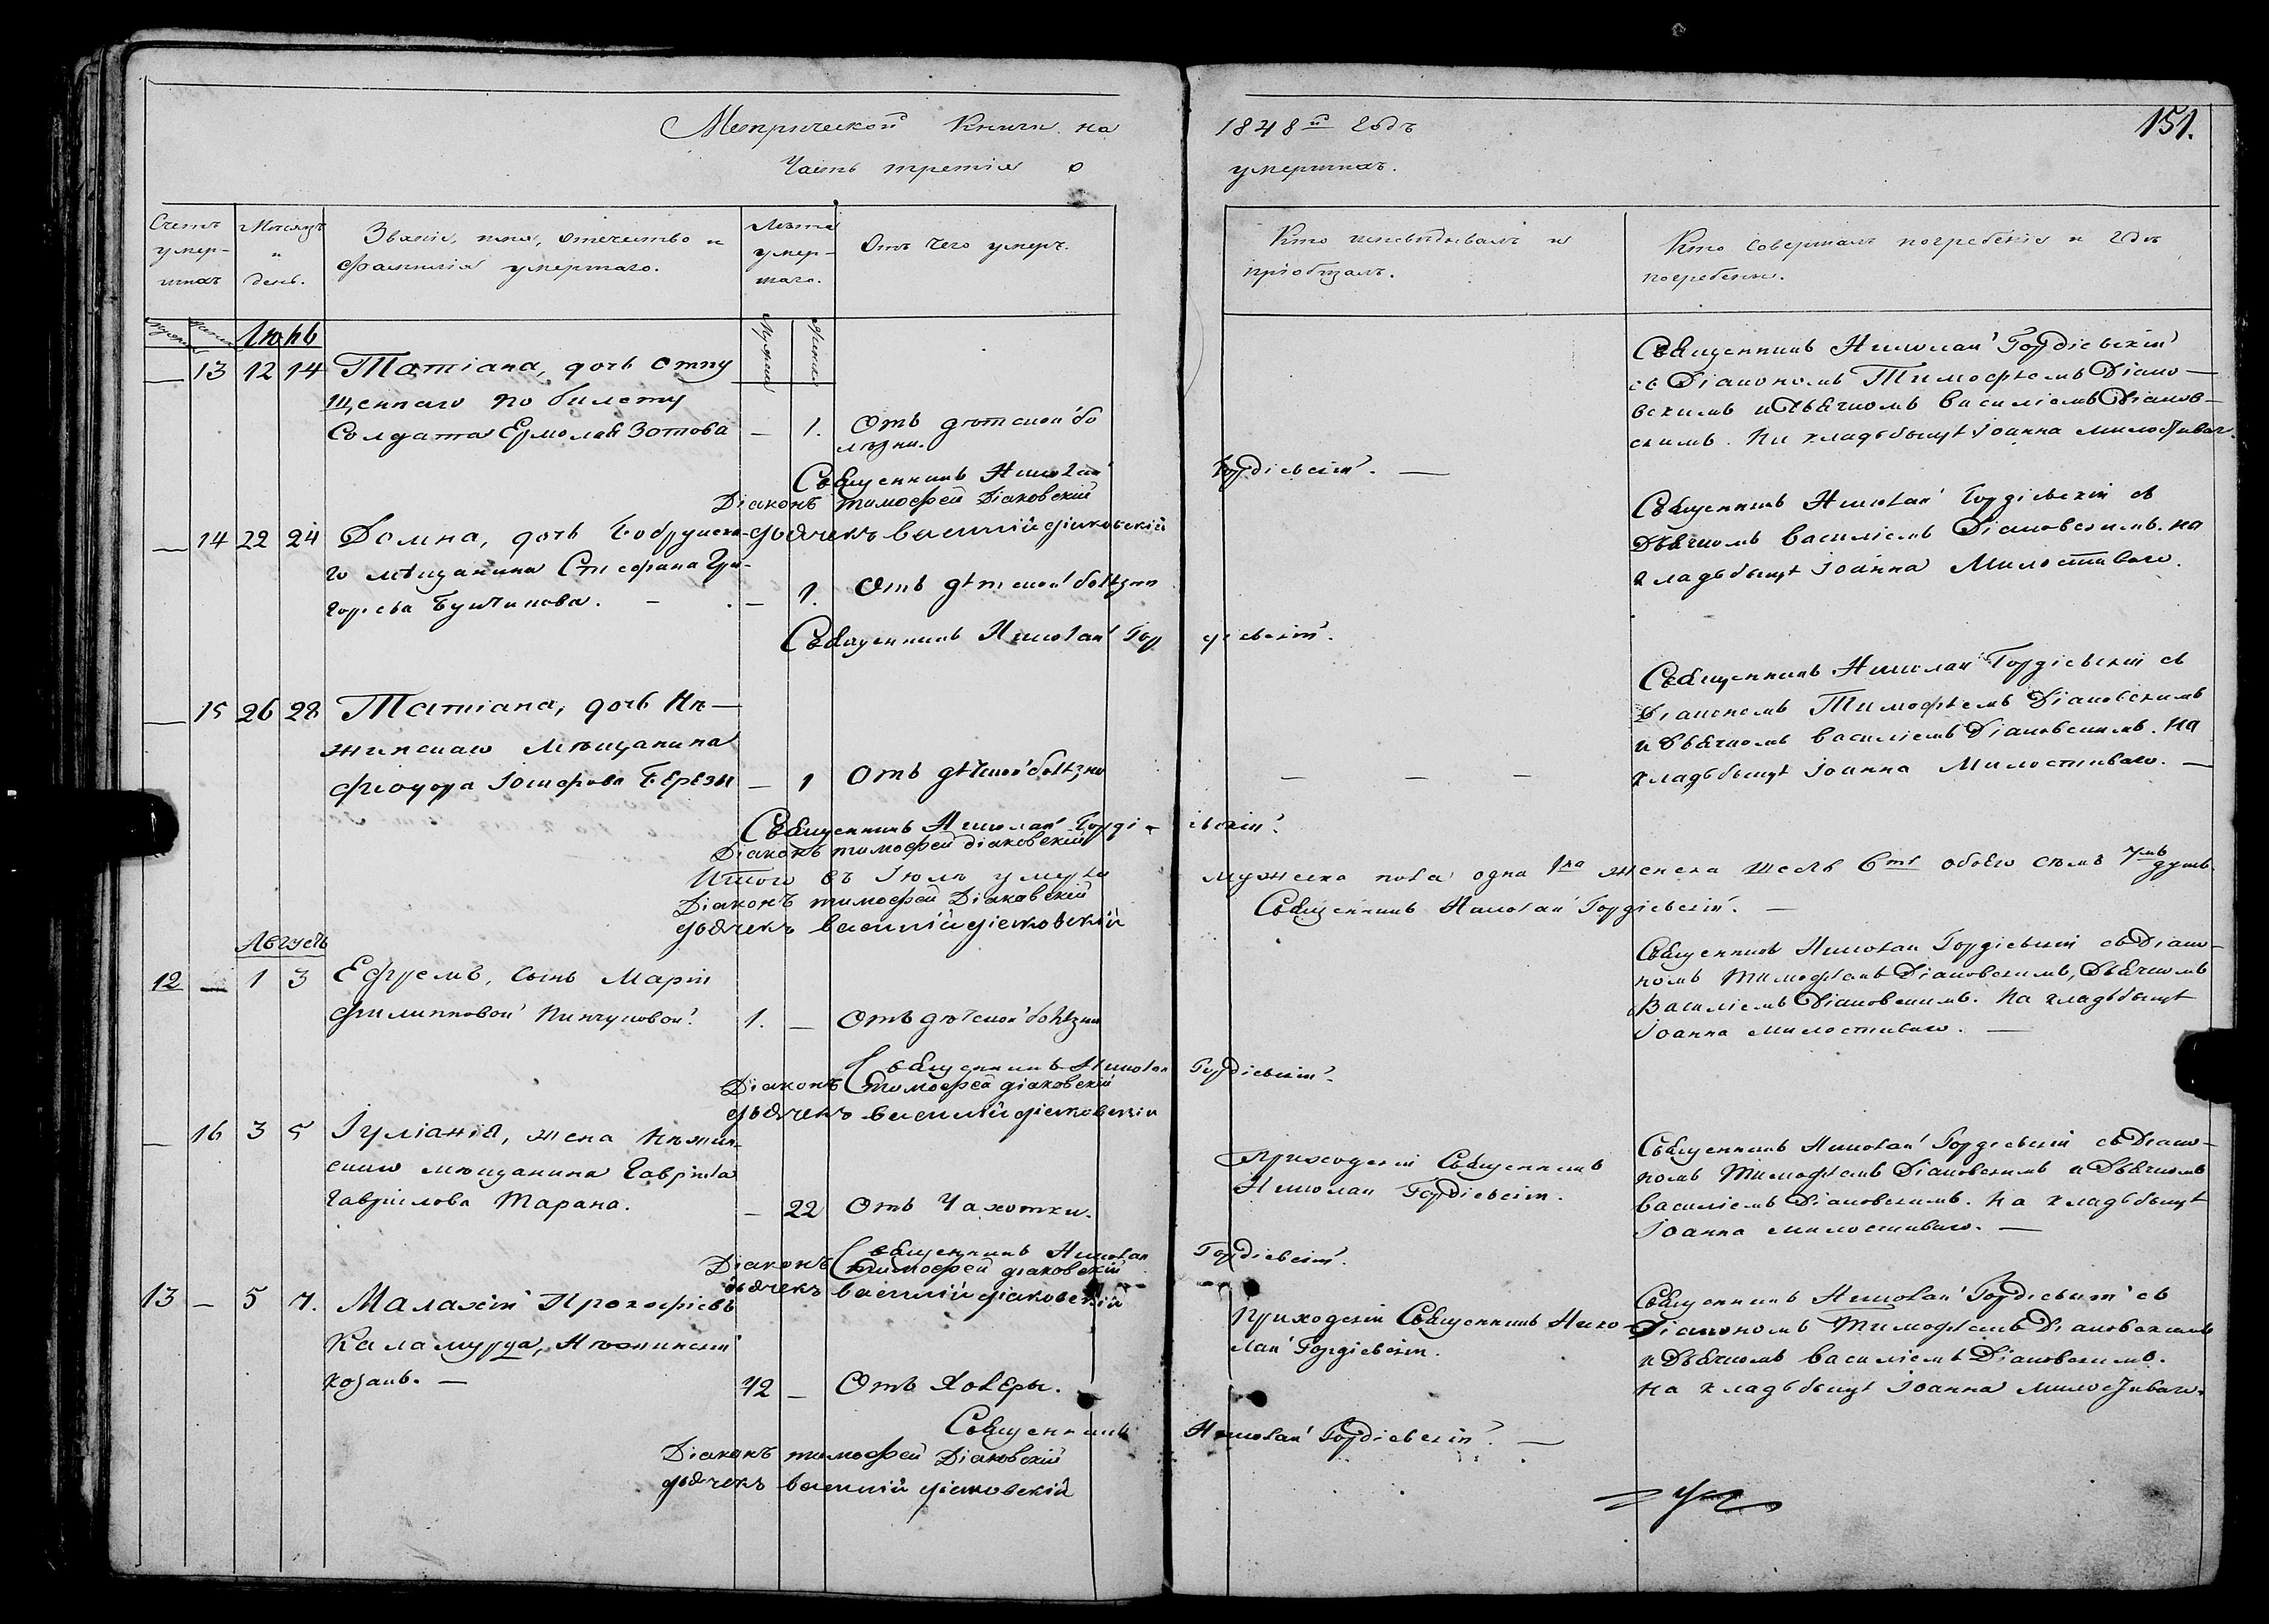 Метрической Книги на 1848й Годъ
151.
Часть третія о умершихъ.
Счетъ умер-шихъ
Мѣсяцъ и день.
Званіе, имя, отчество и фамилія умершаго.
Лѣта умер-шаго.
Отъ чего умеръ.
Кто исповѣдывалъ и пріобщалъ.
Кто совершалъ погребеніе и гдѣ погребены.
Іюль
13 12 14 Татіана, дочь отпу
щеннаго по билету
Солдата Ермолая Зотова — 1. Отъ дѣтской бо
лѣзни.
Священникъ Николай Гордіевскій
съ Діакономъ Тимофеемъ Діако—
вскимъ и Дьячкомъ Василіемъ Діаков—
скимъ. На кладьбищѣ Іоанна Милостиваго.
Священникъ Николай Гордіевскій. —
Діаконъ Тимофей Діаковскій
дьячекъ Василій Діаковскій
— 14 22 24 Домна, дочь Бобруйска-
го мѣщанина Стефана Гри-
горьева — 1. Отъ дѣтской болѣзни
Священникъ Николай Гордіевскій съ
Дьячкомъ Василіемъ Діаковскимъ. На
кладьбищѣ Іоанна Милостиваго.
Священникъ Николай Гордіевскій.
— 15 26 28 Татіана, дочь Нѣ—
жинскаго Мѣщанина
Фіодора Іосифова Березы — 1 Отъ дѣтской болѣзни
— — —
Священникъ Николай Гордіевскій съ
Діакономъ Тимофеемъ Діаковскимъ
и Дьячкомъ Василіемъ Діаковскимъ. На
кладьбищѣ Іоанна Милостиваго. —
Священникъ Николай Гордіевскій.
Діаконъ Тимофей Діаковскій
Итого въ Іюлѣ умерло Мужеска пола одна 1на женска шесть 6ть обоего семь 7мь душъ.
Діаконъ Тимофей Діаковскій
Священникъ Николай Гордіевскій. —
дьячекъ Василій Діаковскій
Августъ
12 — 1 3 Ефремъ, сынъ Маріи
Филипповой 1. — Отъ дѣтской болѣзни
Священникъ Николай Гордіевскій съ Діако—
номъ Тимофеемъ Діаковскимъ, Дьячкомъ
Василіемъ Діаковскимъ. На кладьбищѣ
Іоанна Милостиваго. —
Священникъ Николай Гордіевскій.
Діаконъ Тимофей Діаковскій
дьячекъ Василій Діаковскій
— 16 3 5 Іуліанія, жена Нѣжин-
скаго мѣщанина Гавріила
Гавріилова Тарана. — 22 Отъ Чахотки.
Приходскій Священникъ
Николай Гордіевскій.
Священникъ Николай Гордіевскій съ Діако—
номъ Тимофеемъ Діаковскимъ и Дьячкомъ
Василіемъ Діаковскимъ. На кладьбищѣ
Іоанна Милостиваго. —
Священникъ Николай Гордіевскій.
Діаконъ Тимофей Діаковскій
дьячекъ Василій Діаковскій
13 — 5 7. Малахій Прокофіевъ
Каламурда, Нѣжинскій
козакъ. — 42 — Отъ Холеры.
Приходскій Священникъ Нико-
лай Гордіевскій.
Священникъ Николай Гордіевскій съ
Діакономъ Тимофеемъ Діаковскимъ
и Дьячкомъ Василіемъ Діаковскимъ.
На кладьбищѣ Іоанна Милостиваго.
Священникъ Николай Гордіевскій. —
Діаконъ Тимофей Діаковскій
дьячекъ Василій Діаковскій